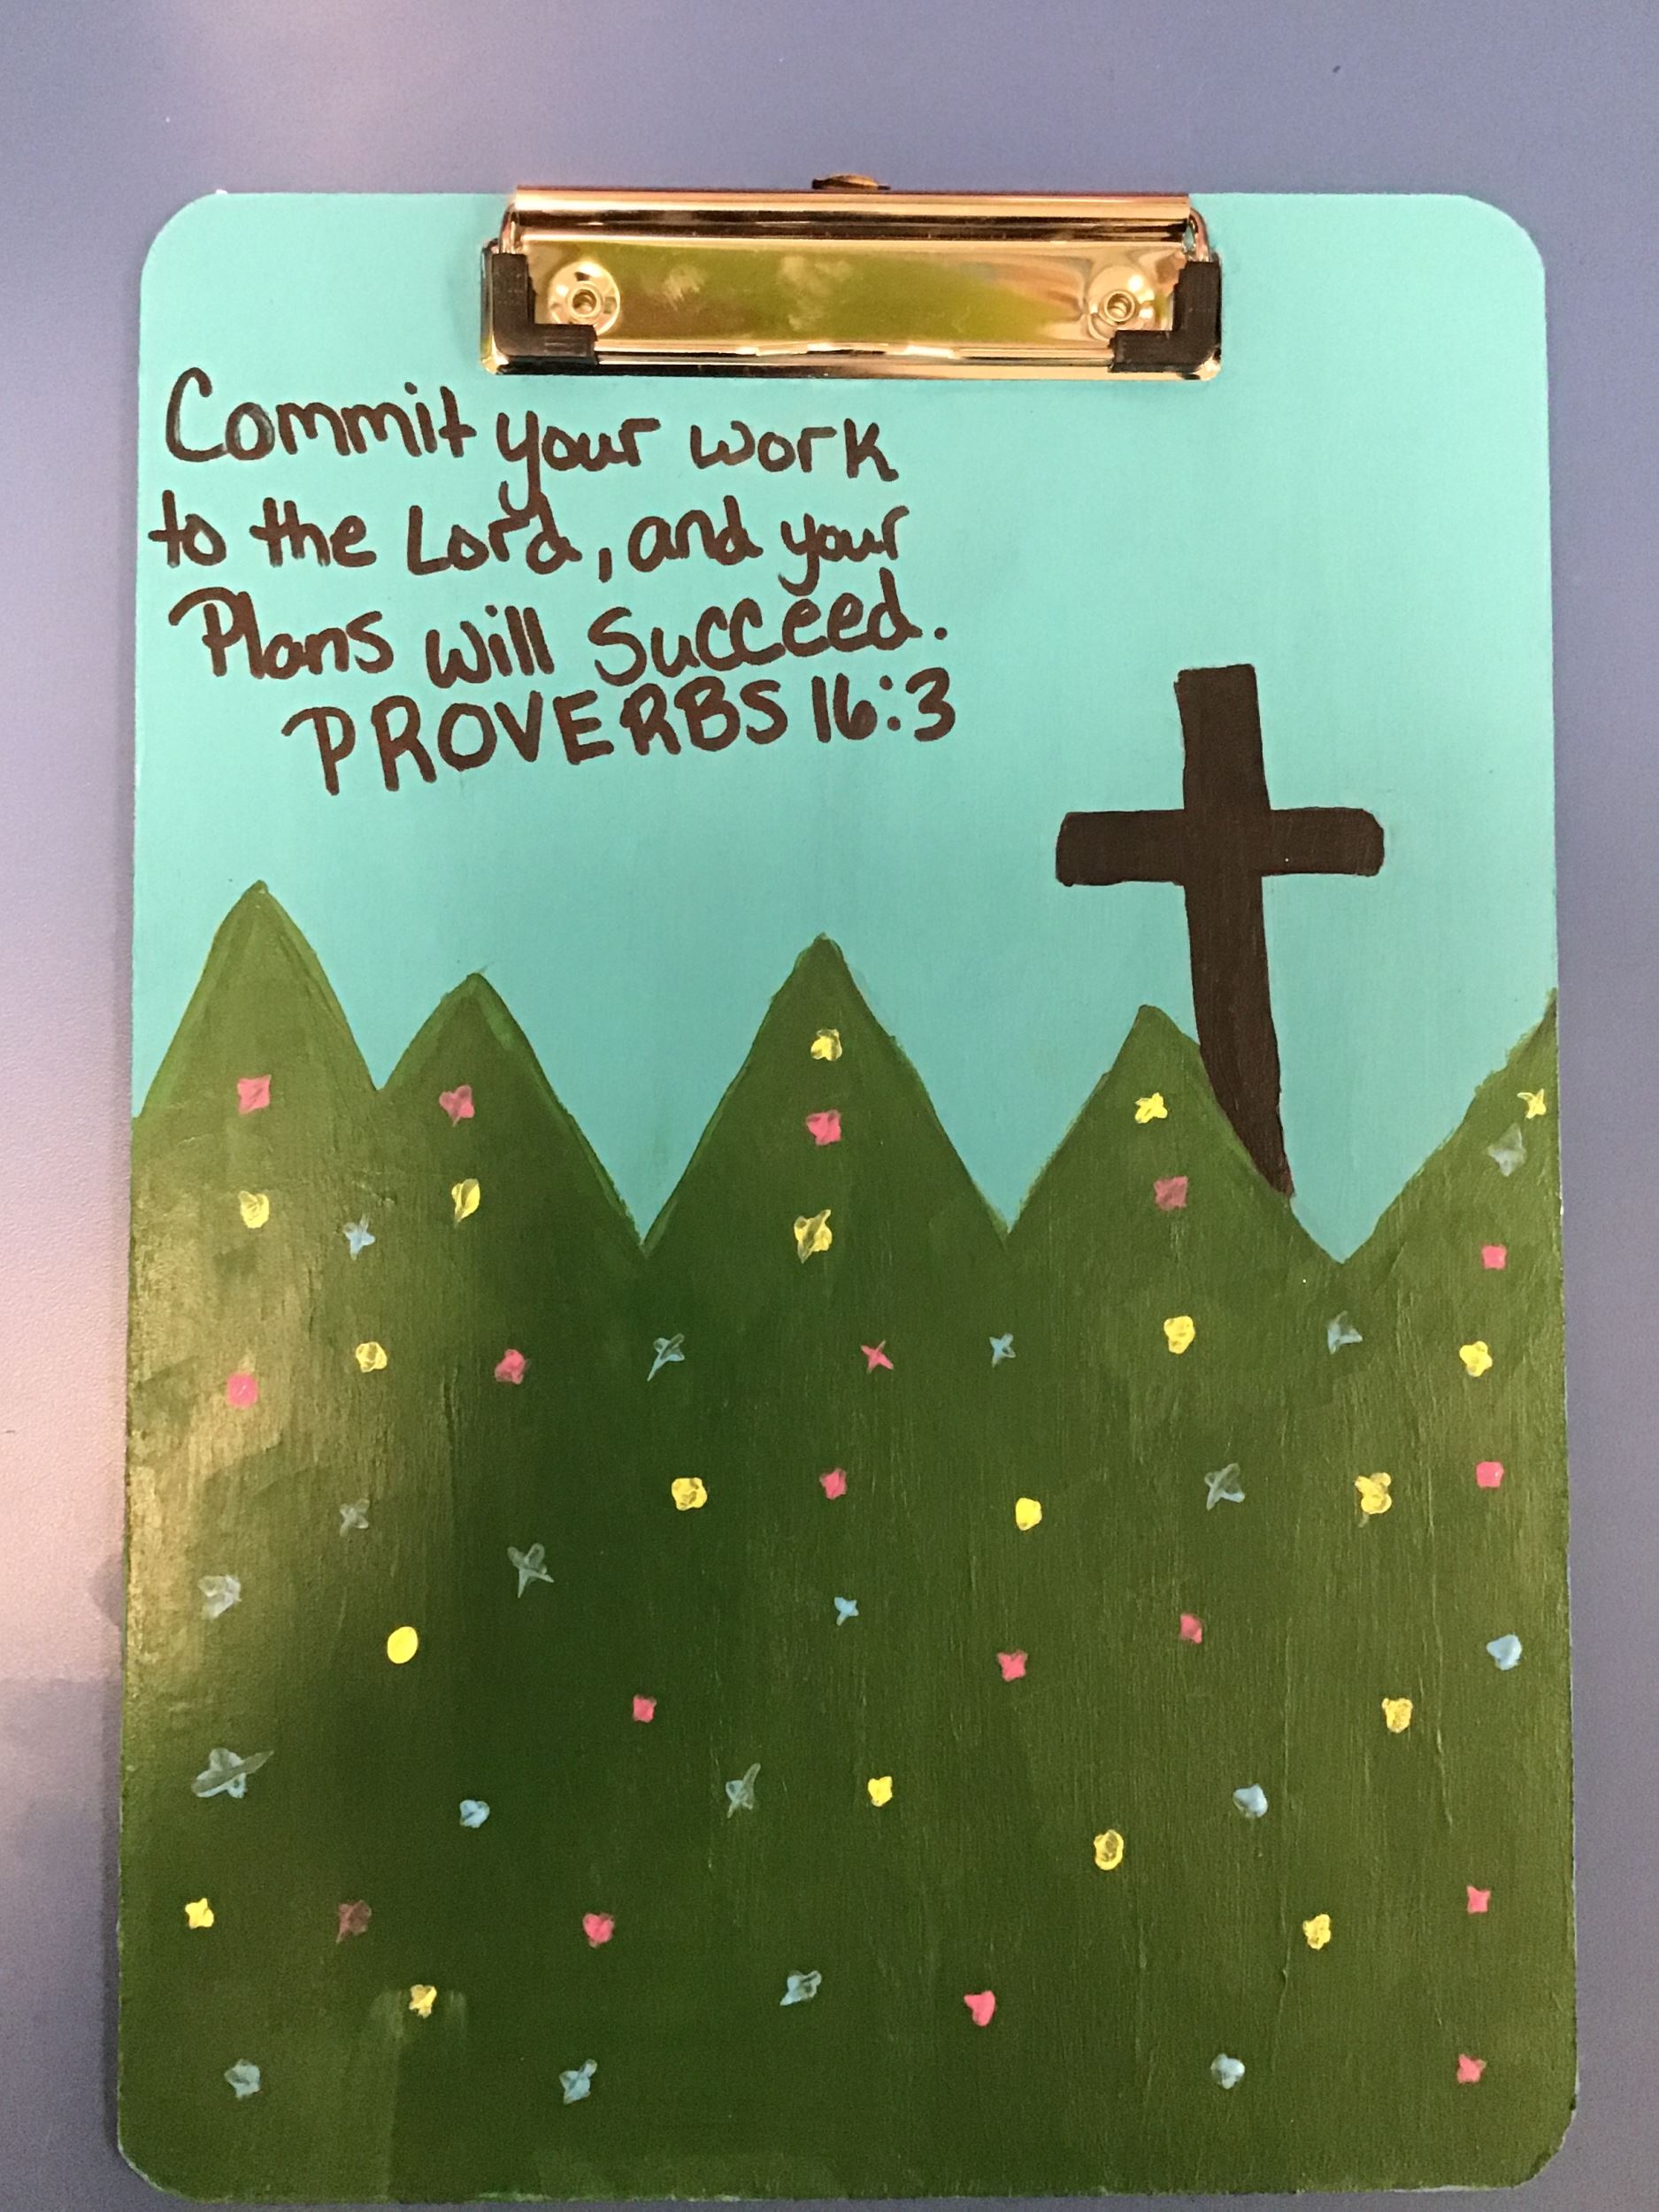 Commit your work
to the Lord, and your
Plans will Succeed.
PROVERBS 16:3